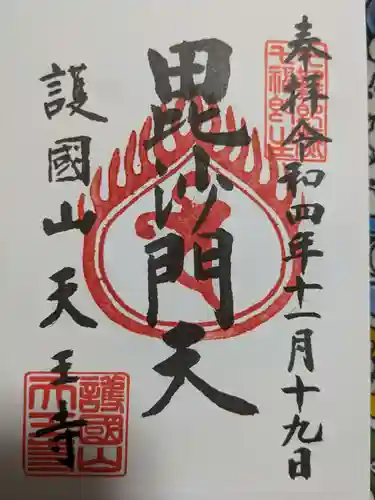 奉拝令和四年十一月十九日
毘沙門天
護國山天王寺
護國山
天王寺